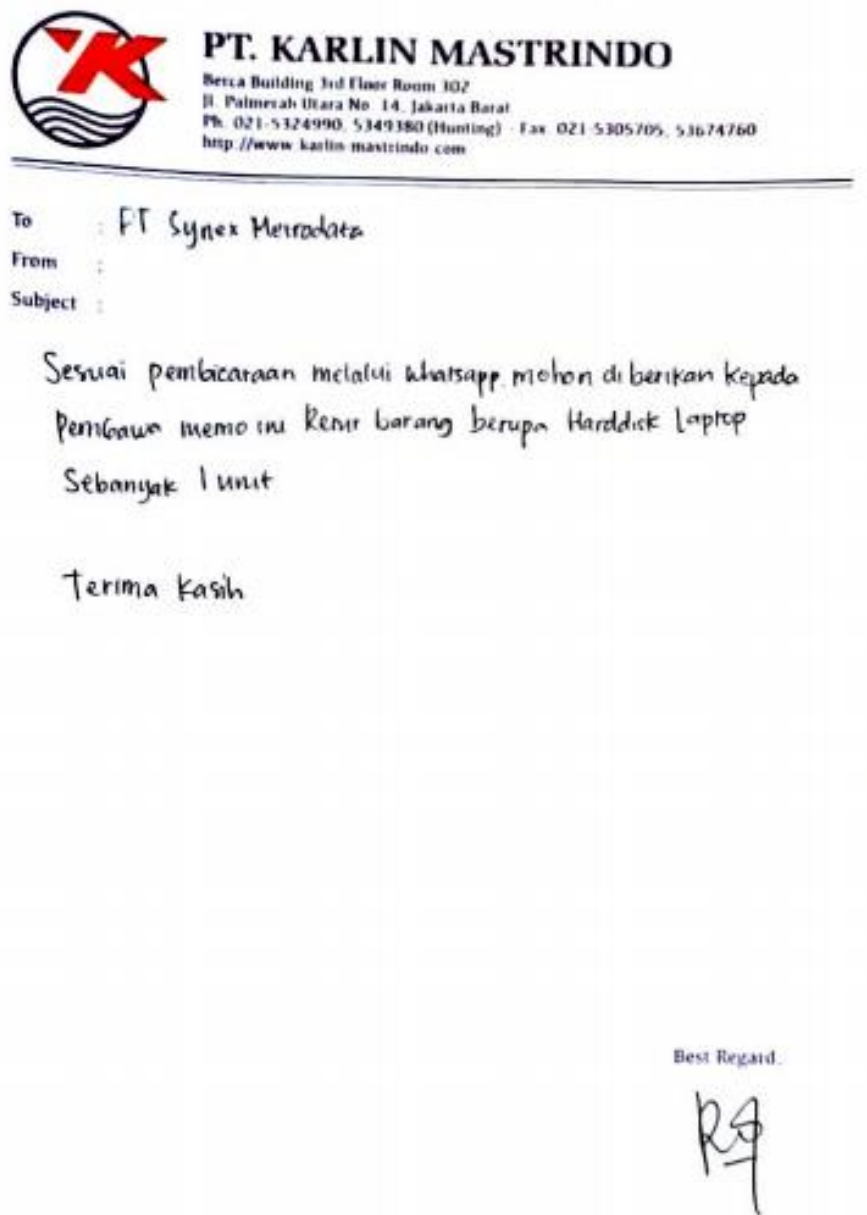 PT. KARLIN MASTRINDO
Berca Building 3rd Floor Room 302
Jl. Palmerah Utara No. 14, Jakarta Barat
Ph. 021-5324990, 5349380 (Hunting) - Fax. 021-5305705, 53674760
http://www.karlin-mastrindo.com
To : PT Synex Metrodata
From :
Subject :
Sesuai pembicaraan melalui whatsapp mohon di berikan kepada
Pembawa memo ini Retur barang berupa Harddisk Laptop
Sebanyak 1 unit
Terima Kasih
Best Regard,